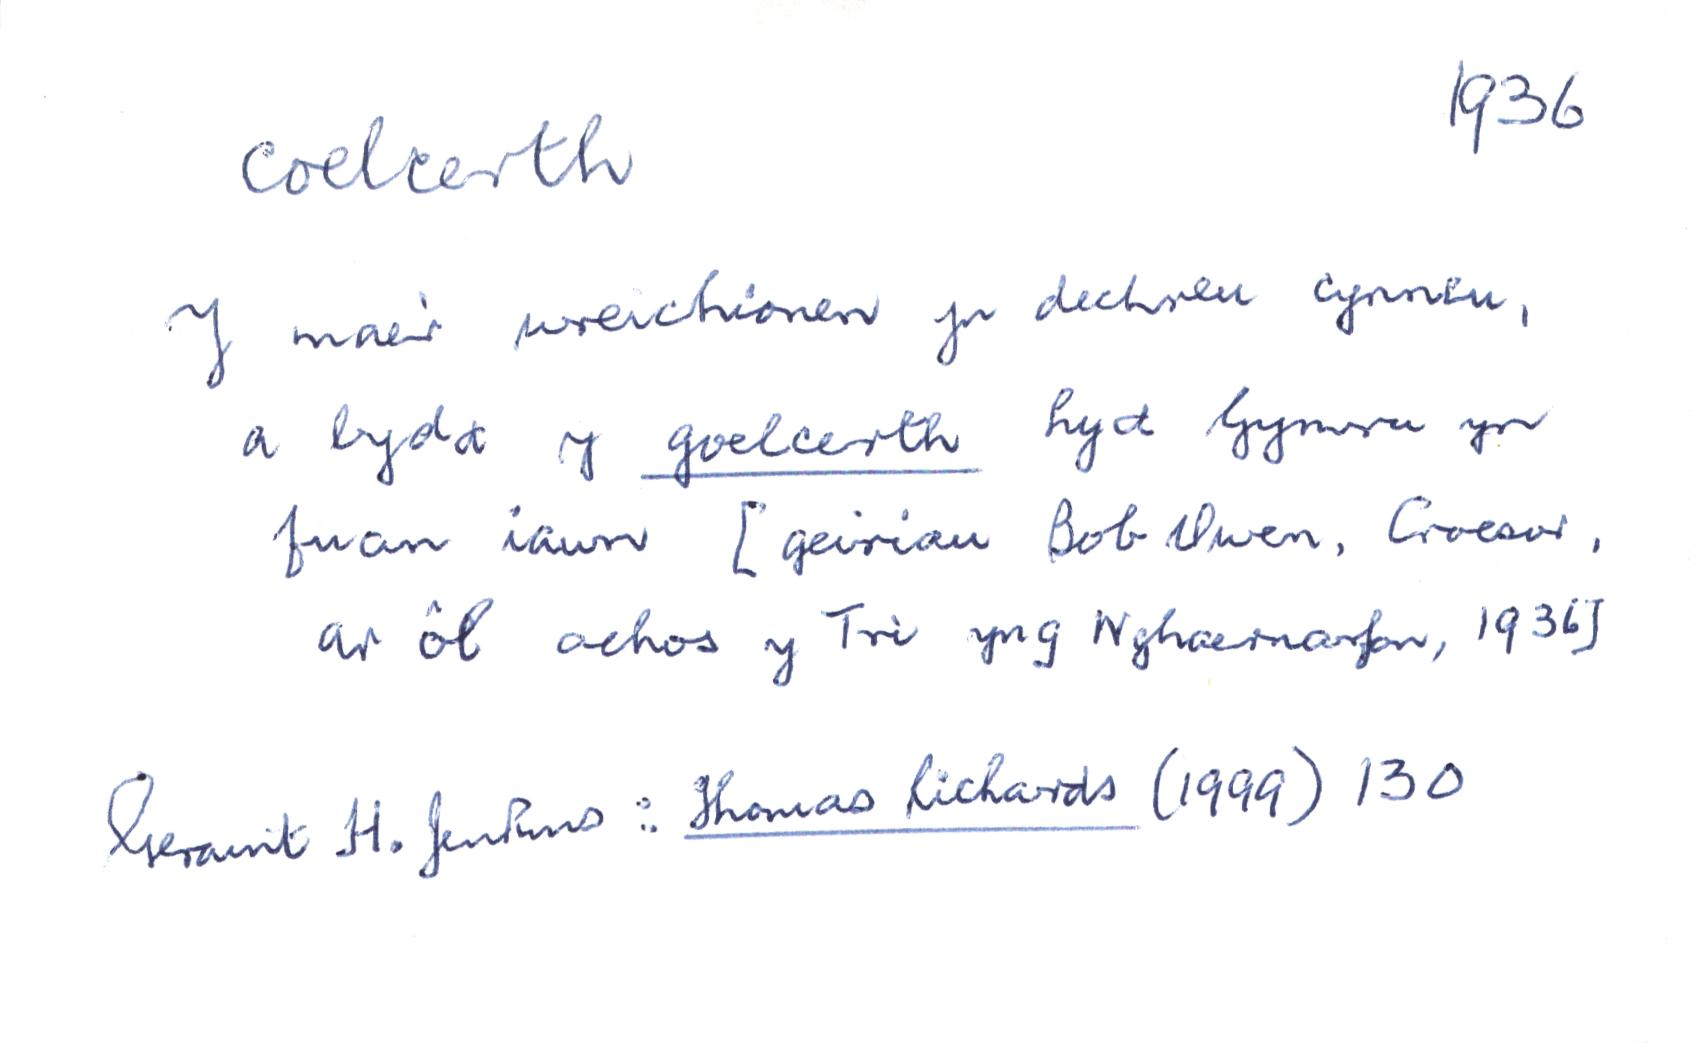 1936
coelcerth
Y maer wreichionen yn dechreu cynneu,
a bydd y goelcerth hyd Gymru yn
fuan iawn [geiriau Bob Owen, Croesor,
ar ôl achos y Tri yng Nghaernarfon, 1936]
Geraint H. Jenkins: Thomas Richards (1999) 130